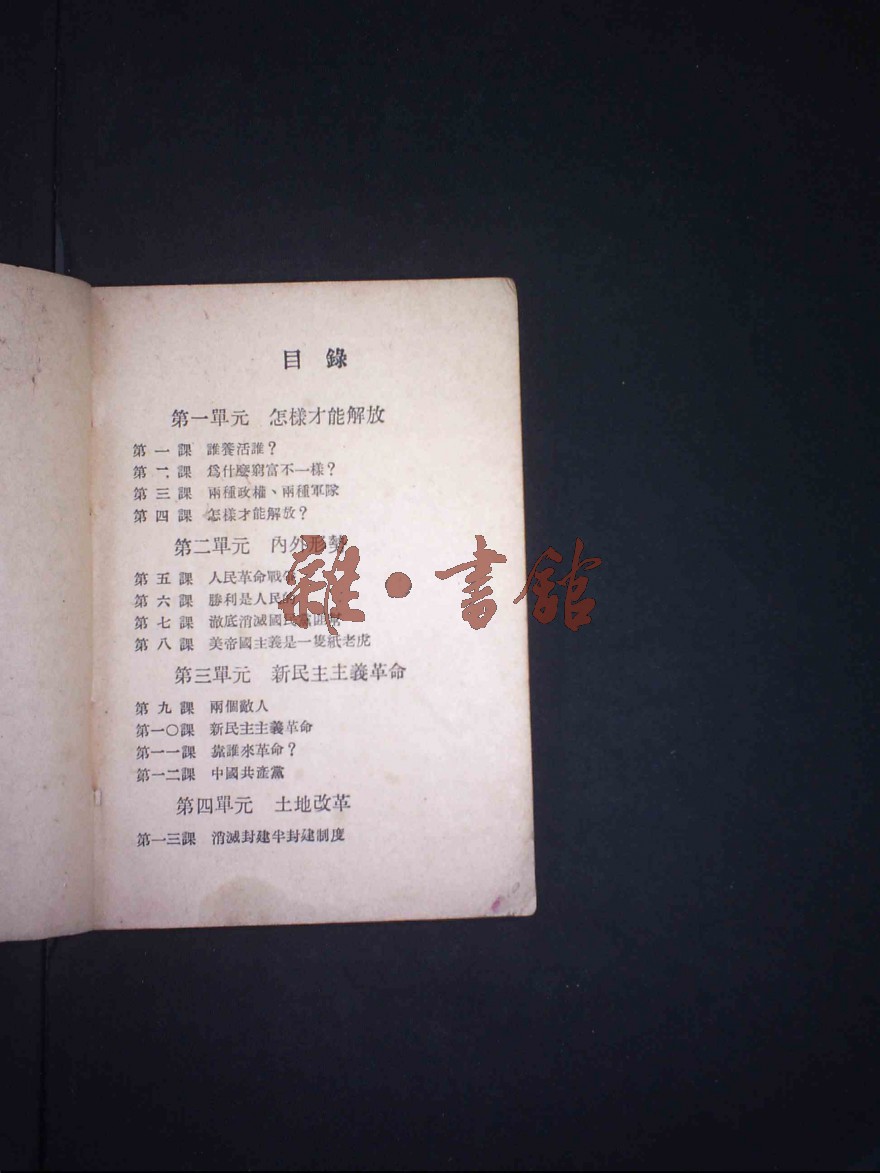 目錄
第一單元 怎樣才能解放
第一課 誰養活誰？
第二課 爲什麼窮富不一樣？
第三課 兩種政權、兩種軍隊
第四課 怎樣才能解放？
第二單元 內外形勢
第五課 人民革命戰
第六課 勝利是人民的
第七課 澈底消滅國民黨
第八課 美帝國主義是一隻紙老虎
第三單元 新民主主義革命
第九課 兩個敵人
第一〇課 新民主主義革命
第一一課 靠誰來革命？
第一二課 中國共產黨
第四單元 土地改革
第一三課 消滅封建半封建制度
雜·書館